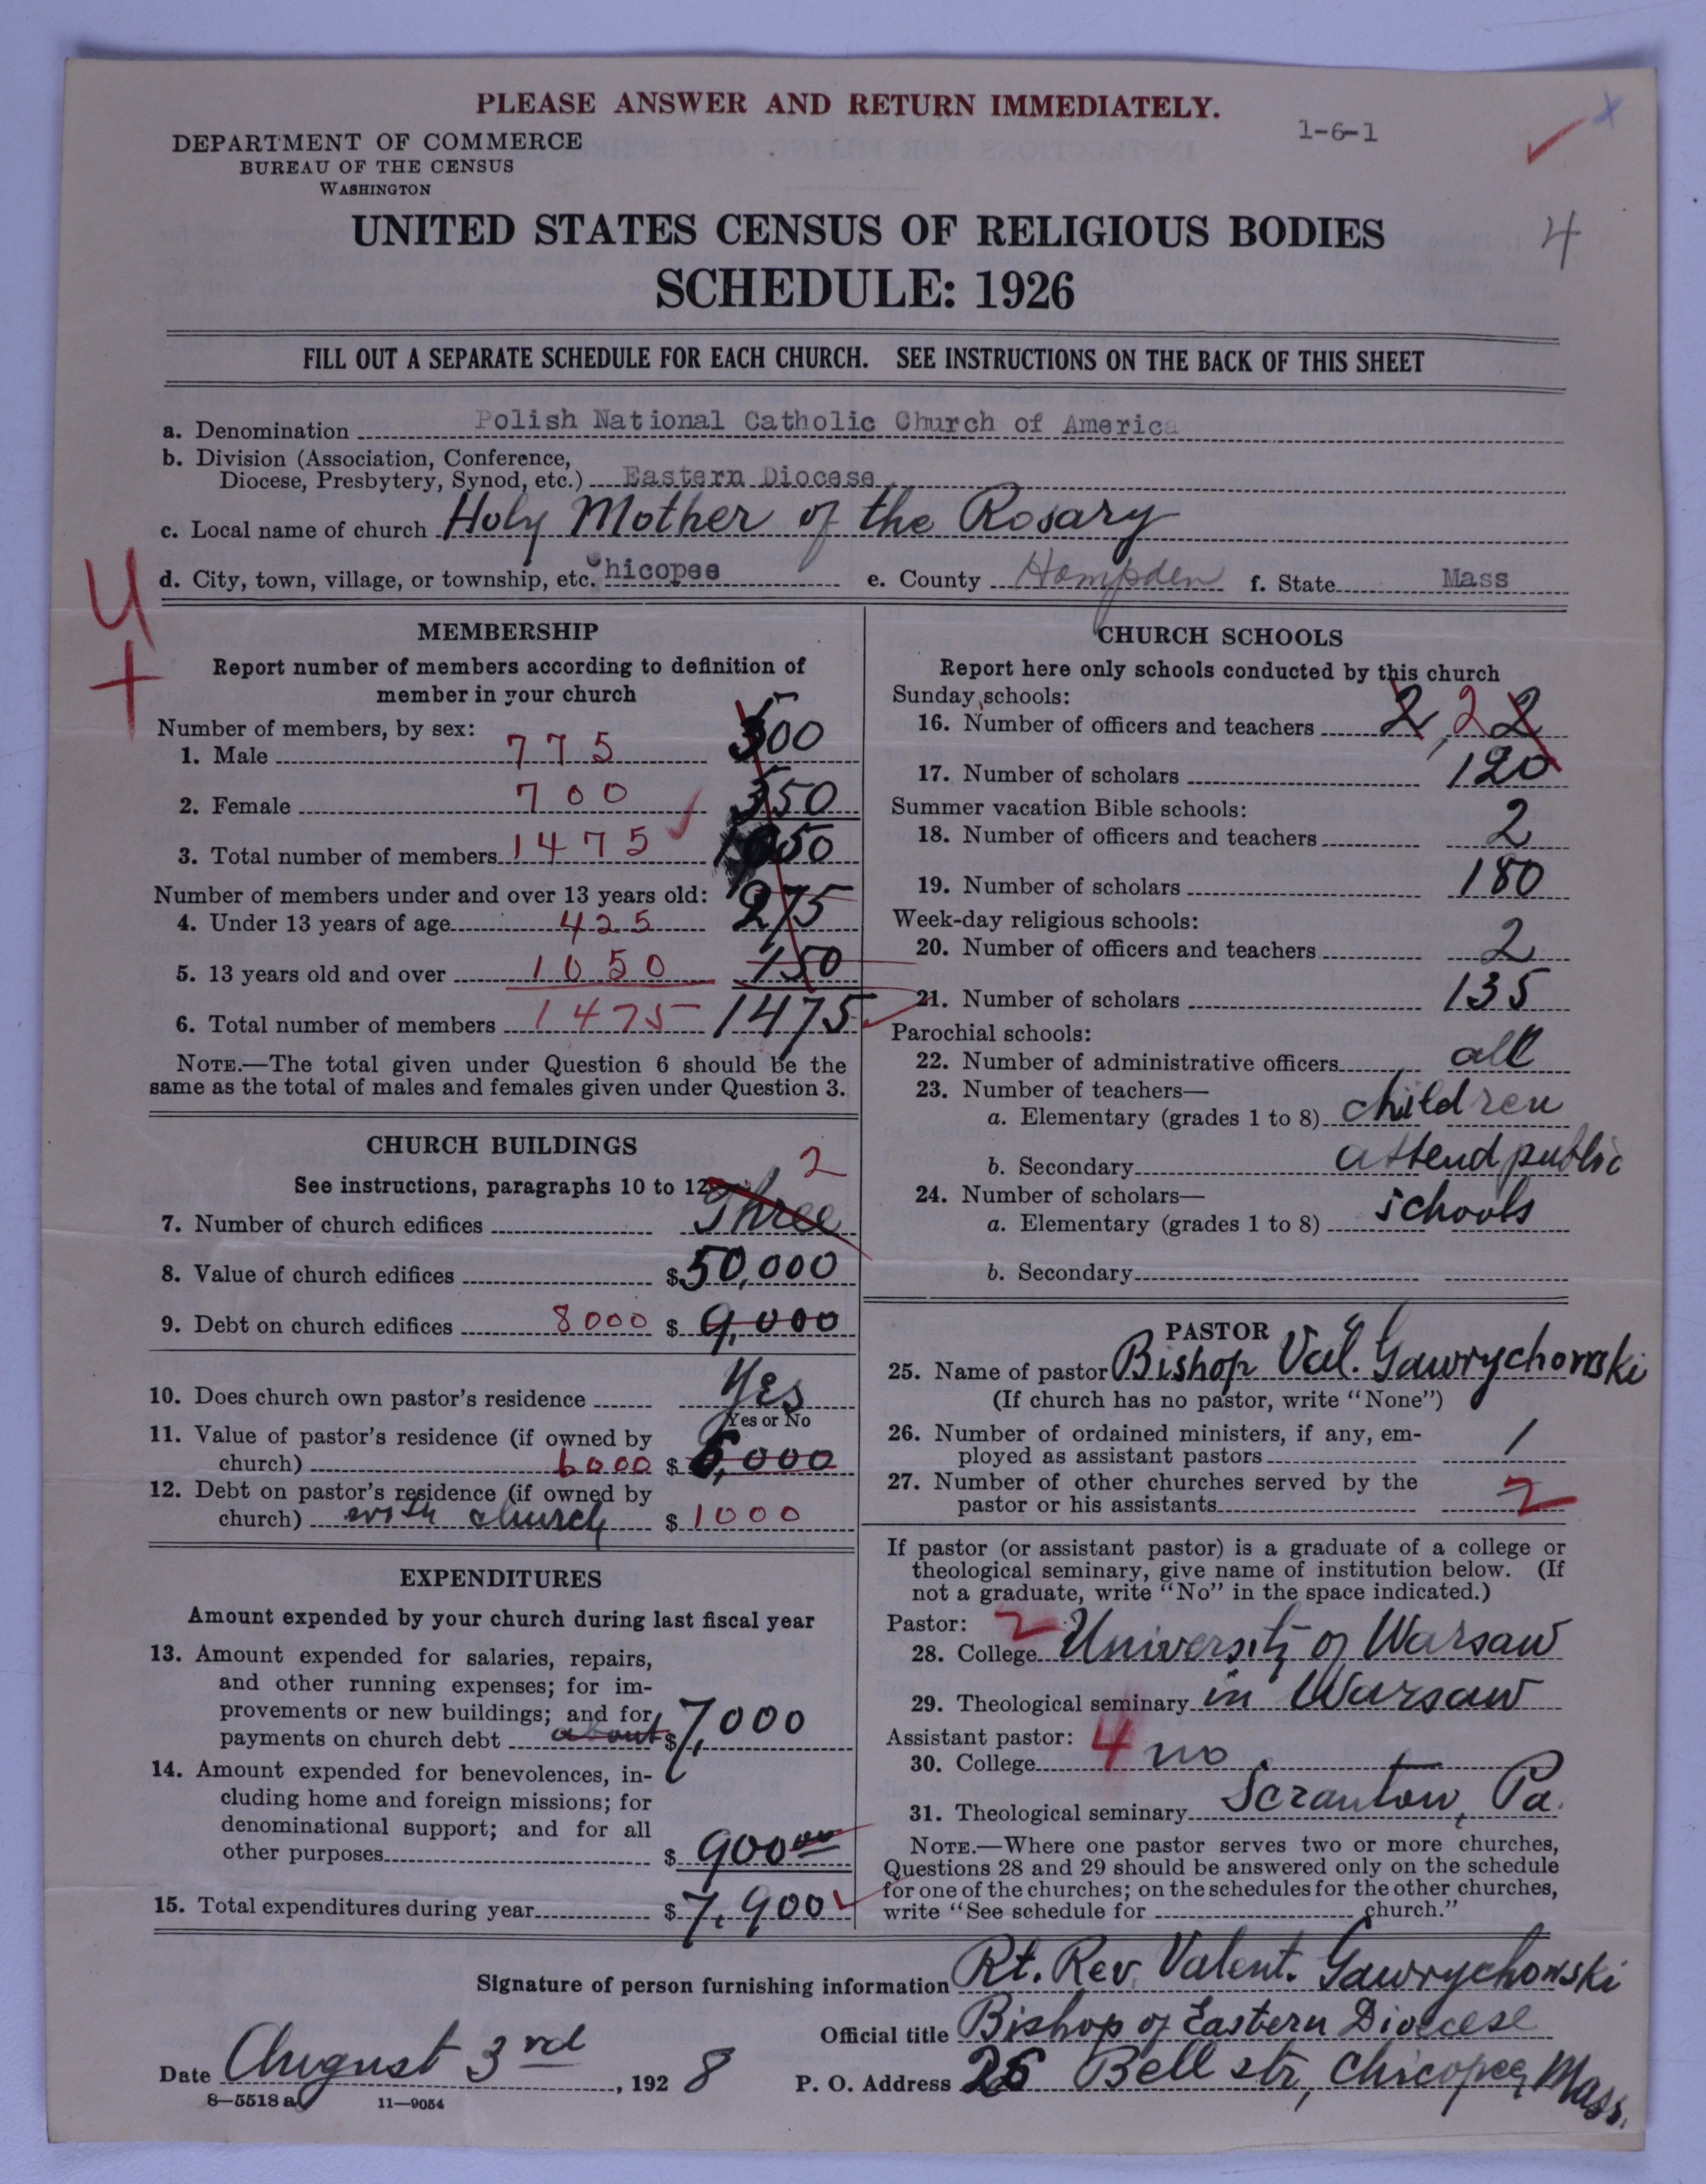 PLEASE ANSWER AND RETURN IMMEDIATELY.
1-6-1
DEPARTMENT OF COMMERCE
BUREAU OF THE CENSUS
WASHINGTON
UNITED STATES CENSUS OF RELIGIOUS BODIES
4
SCHEDULE: 1926
FILL OUT A SEPARATE SCHEDULE FOR EACH CHURCH. SEE INSTRUCTIONS ON THE BACK OF THIS SHEET
a. Denomination Polish National Catholic Church of America
b. Division (Association, Conference,
Diocese, Presbytery, Synod, etc.) Eastern Diocese
c. Local name of church Holy Mother of the Rosary
d. City, town, village, or township, etc. Chicopee e. County Hampden f. State Mass
MEMBERSHIP
Report number of members according to definition of
member in your church
Number of members, by sex:
1. Male 775 500
2. Female 700 550
3. Total number of members 1475 1050
Number of members under and over 13 years old:
4. Under 13 years of age 425 275
5. 13 years old and over 1050 150
6. Total number of members 1475 1475
NOTE.—The total given under Question 6 should be the
same as the total of males and females given under Question 3.
CHURCH BUILDINGS
2
See instructions, paragraphs 10 to 12
7. Number of church edifices Three
8. Value of church edifices $ 50,000
9. Debt on church edifices 8000 $ 9,000
10. Does church own pastor's residence Yes
Yes or No
11. Value of pastor's residence (if owned by
church) 6000 $ 6,000
12. Debt on pastor's residence (if owned by
church) with church $ 1000
EXPENDITURES
Amount expended by your church during last fiscal year
13. Amount expended for salaries, repairs,
and other running expenses; for im-
provements or new buildings; and for
payments on church debt about $ 7,000
14. Amount expended for benevolences, in-
cluding home and foreign missions; for
denominational support; and for all
other purposes $ 900 00
15. Total expenditures during year $ 7,900
CHURCH SCHOOLS
Report here only schools conducted by this church
Sunday schools:
16. Number of officers and teachers 2, 2 2
17. Number of scholars 120
Summer vacation Bible schools:
18. Number of officers and teachers 2
19. Number of scholars 180
Week-day religious schools:
20. Number of officers and teachers 2
21. Number of scholars 135
Parochial schools:
22. Number of administrative officers all
23. Number of teachers—
a. Elementary (grades 1 to 8) children
b. Secondary attend public
24. Number of scholars—
a. Elementary (grades 1 to 8) schools
b. Secondary
PASTOR
25. Name of pastor Bishop Val. Gawrychowski
(If church has no pastor, write "None")
26. Number of ordained ministers, if any, em-
ployed as assistant pastors 1
27. Number of other churches served by the
pastor or his assistants 2
If pastor (or assistant pastor) is a graduate of a college or
theological seminary, give name of institution below. (If
not a graduate, write "No" in the space indicated.)
Pastor: 2
28. College University of Warsaw
29. Theological seminary in Warsaw
Assistant pastor: 4
30. College no
31. Theological seminary Scranton, Pa.
NOTE.—Where one pastor serves two or more churches,
Questions 28 and 29 should be answered only on the schedule
for one of the churches; on the schedules for the other churches,
write "See schedule for church."
Signature of person furnishing information Rt. Rev. Valent. Gawrychowski
Official title Bishop of Eastern Diocese
Date August 3rd, 1928 P. O. Address 26 Bell str, Chicopee, Mass.
8—5518 a 11—9054